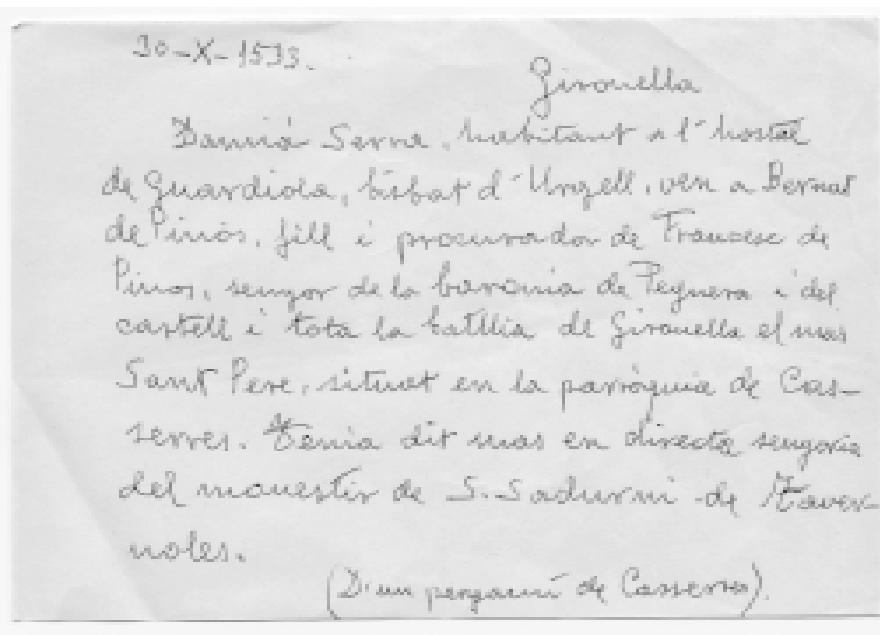 30-X-1533.
Gironella
Damiá Serra, habitant a l'hostal
de Guardiola, bisbat d'Urgell, ven a Bernat
de Pinós, fill i procurador de Francesc de
Pinos, senyor de la baronia de Peguera i del
castell i tota la batllia de Gironella el mas
Sant Pere, situat en la parròquia de Cas-
serres. Tenia dit mas en directa senyoria
del monestir de S. Sadurní de Taver-
noles.
(D'un pergamí de Casserres).